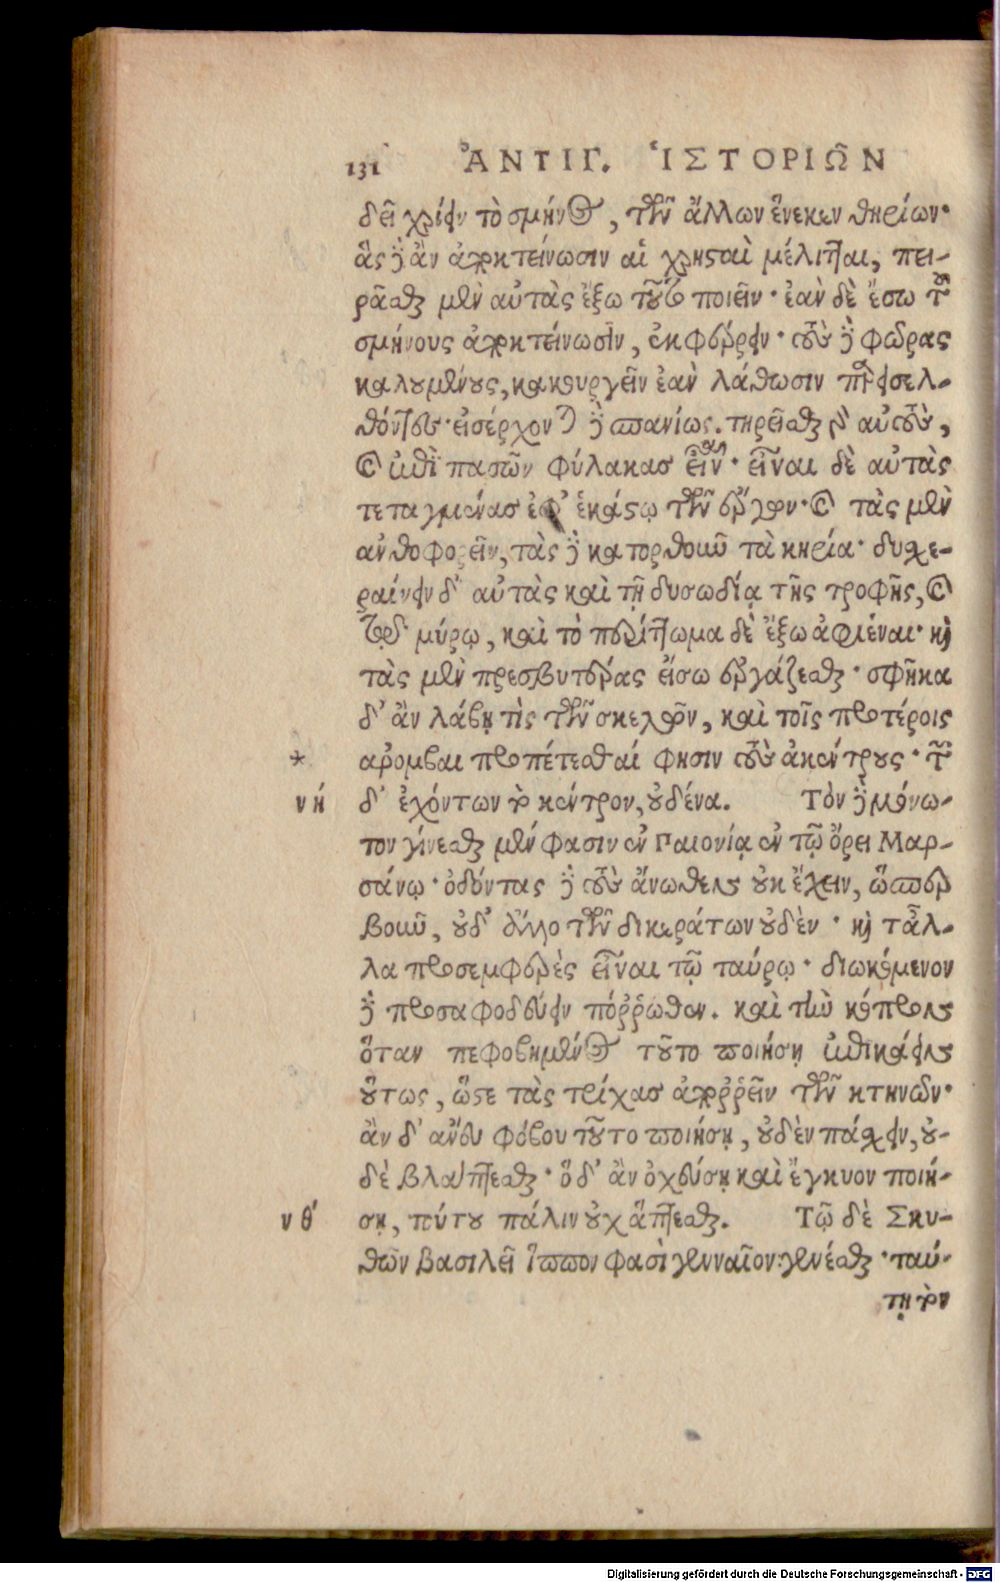 131 ἈΝΤΙΓ. ἹΣΤΟΡΙΩ͂Ν
δεῖ χρίειν τὸ σμῆνος, τῶν ἄλλων ἕνεκεν θηρίων·
ἃς δ' ἂν ἀποκτείνωσιν αἱ χρησταὶ μέλιτται, πει-
ρᾶσθαι μὲν αὐτὰς ἔξω τοῦτο ποιεῖν· ἐὰν δὲ ἔσω τοῦ
σμήνους ἀποκτείνωσιν, ἐκφέρειν· τοὺς δὲ φῶρας
καλουμένους, κακουργεῖν ἐὰν λάθωσιν παρεισελ-
θόντες· εἰσέρχονται δὲ σπανίως. τηρεῖσθαι γὰρ αὐτοὺς,
καὶ ἐπὶ πασῶν φύλακας εἶναι· εἶναι δὲ αὐτὰς
τεταγμένας ἐφ' ἑκάστῳ τῶν ἔργων· καὶ τὰς μὲν
ἀνθοφορεῖν, τὰς δὲ κατορθοῦν τὰ κηρία· δυσχε-
ραίνειν δ' αὐτὰς καὶ τῇ δυσωδίᾳ τῆς τροφῆς, καὶ
τῷ μύρῳ, καὶ τὸ περίττωμα δὲ ἔξω ἀφιέναι· καὶ
τὰς μὲν πρεσβυτέρας εἴσω ἐργάζεσθαι· σφῆκα
δ' ἂν λάβῃ τὶς τῶν σκελῶν, καὶ τοῖς προτέροις
* προπέτεσθαί φησιν τοὺς ἀκέντρους· τῶν
νή δ' ἐχόντων τὸ κέντρον, οὐδένα. Τὸν δὲ μόνω-
τον γίνεσθαι μέν φασιν ἐν Παιονίᾳ ἐν τῷ ὄρει Μαρ-
σάνῳ· ὀδόντας δὲ τοὺς ἄνωθεν οὐκ ἔχειν, ὥσπερ
βοῦν, οὐδ' ἄλλο τῶν δικεράτων οὐδὲν· καὶ τἆλ-
λα προσεμφερὲς εἶναι τῷ ταύρῳ· διωκόμενον
δὲ προσαφοδεύειν πόῤῥωθεν. καὶ τὴν κόπρον
ὅταν πεφοβημένος τοῦτο ποιήσῃ ἐπικάειν
οὕτως, ὥστε τὰς τρίχας ἀποῤῥεῖν τῶν κτηνῶν·
ἂν δ' ἄνευ φόβου τοῦτο ποιήσῃ, οὐδὲν πάσχειν, οὐ-
δὲ βλάπτεσθαι· ὃ δ' ἂν ὀχεύσῃ καὶ ἔγκυον ποιή-
νθ' σῃ, τούτου πάλιν οὐχ ἅπτεσθαι. Τῷ δὲ Σκυ-
θῶν βασιλεῖ ἵππον φασὶ γενναῖον γενέσθαι· ταύ-
τῃ
Digitalisierung gefördert durch die Deutsche Forschungsgemeinschaft - DFG